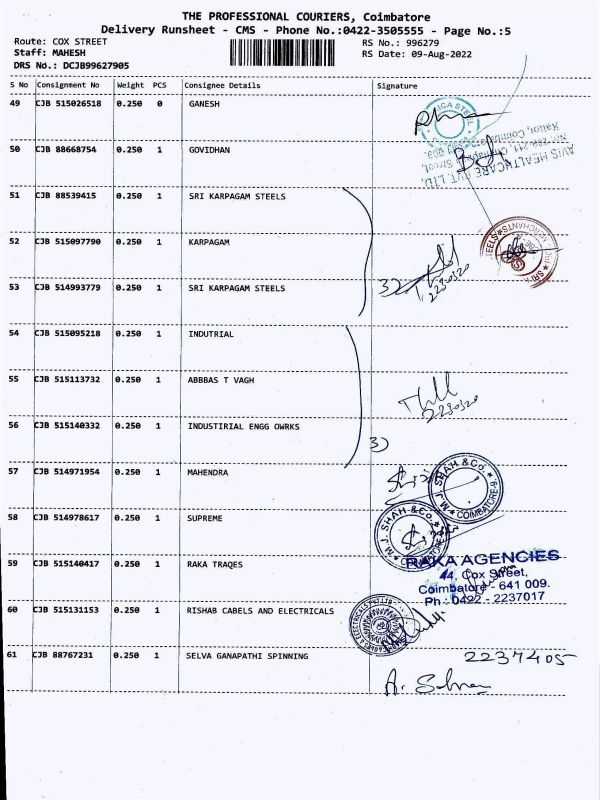 THE PROFESSIONAL COURIERS, Coimbatore
Delivery Runsheet - CMS - Phone No.:0422-3505555 - Page No.:5
Route: COX STREET RS No.: 996279
Staff: MAHESH RS Date: 09-Aug-2022
DRS No.: DCJB99627905
S No Consignment No Weight PCS Consignee Details Signature
49 CJB 515026518 0.250 0 GANESH
50 CJB 88668754 0.250 1 GOVIDHAN
AVIS HEALTHCARE PVT LTD.
51 CJB 88539415 0.250 1 SRI KARPAGAM STEELS
52 CJB 515097790 0.250 1 KARPAGAM
53 CJB 514993779 0.250 1 SRI KARPAGAM STEELS 3)
2230320
54 CJB 515095218 0.250 1 INDUTRIAL
55 CJB 515113732 0.250 1 ABBBAS T VAGH
2230320
56 CJB 515140332 0.250 1 INDUSTIRIAL ENGG OWRKS
3)
57 CJB 514971954 0.250 1 MAHENDRA
M.J. SHAH & Co. COIMBATORE
58 CJB 514978617 0.250 1 SUPREME
M.J. SHAH & Co.
59 CJB 515140417 0.250 1 RAKA TRAQES
RAKA AGENCIES
44, Cox Street,
Coimbatore - 641 009.
Ph : 0422 - 2237017
60 CJB 515131153 0.250 1 RISHAB CABELS AND ELECTRICALS
61 CJB 88767231 0.250 1 SELVA GANAPATHI SPINNING 2237405